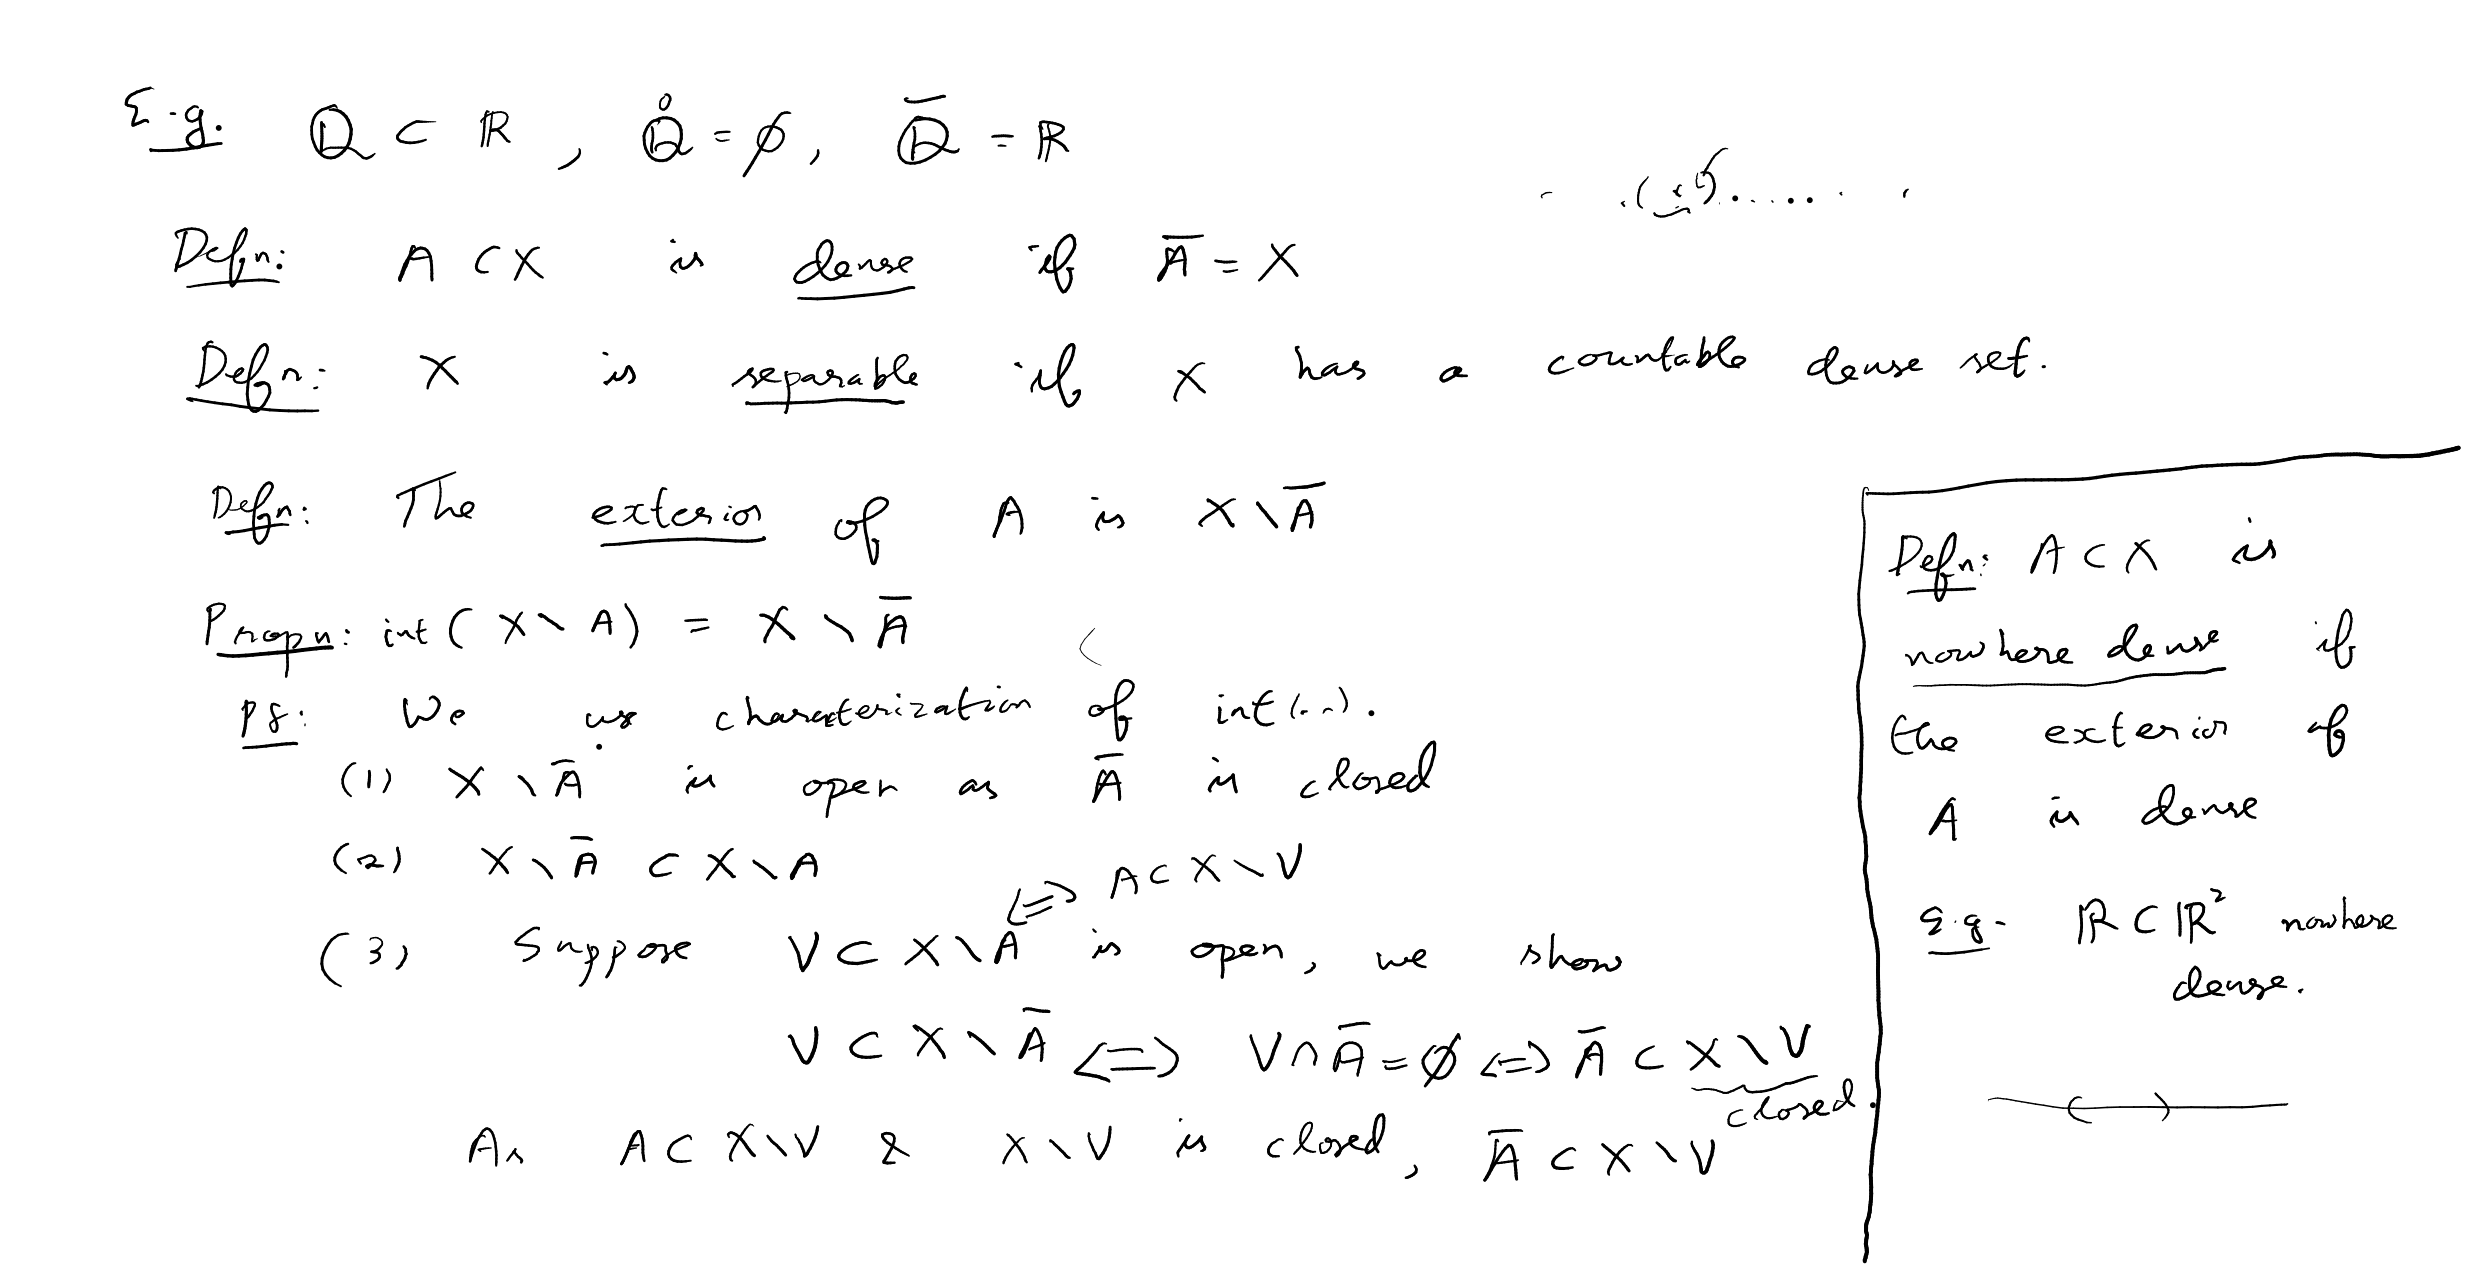 E.g. ℚ ⊂ ℝ, ℚ̊ = ∅, ℚ̅ = ℝ
Defn: A ⊂ X is dense if A̅ = X
Defn: X is separable if X has a countable dense set.
Defn: The exterior of A is X \ A̅
Propn: int(X \ A) = X \ A̅
Pf: We use characterization of int(..).
(1) X \ A̅ is open as A̅ is closed
(2) X \ A̅ ⊂ X \ A
⇔ A ⊂ X \ V
(3) Suppose V ⊂ X \ A is open, we show
V ⊂ X \ A̅ ⇔ V ∩ A̅ = ∅ ⇔ A̅ ⊂ X \ V
closed.
As A ⊂ X \ V & X \ V is closed, A̅ ⊂ X \ V
Defn: A ⊂ X is
nowhere dense if
the exterior of
A is dense
E.g. ℝ ⊂ ℝ² nowhere
dense.